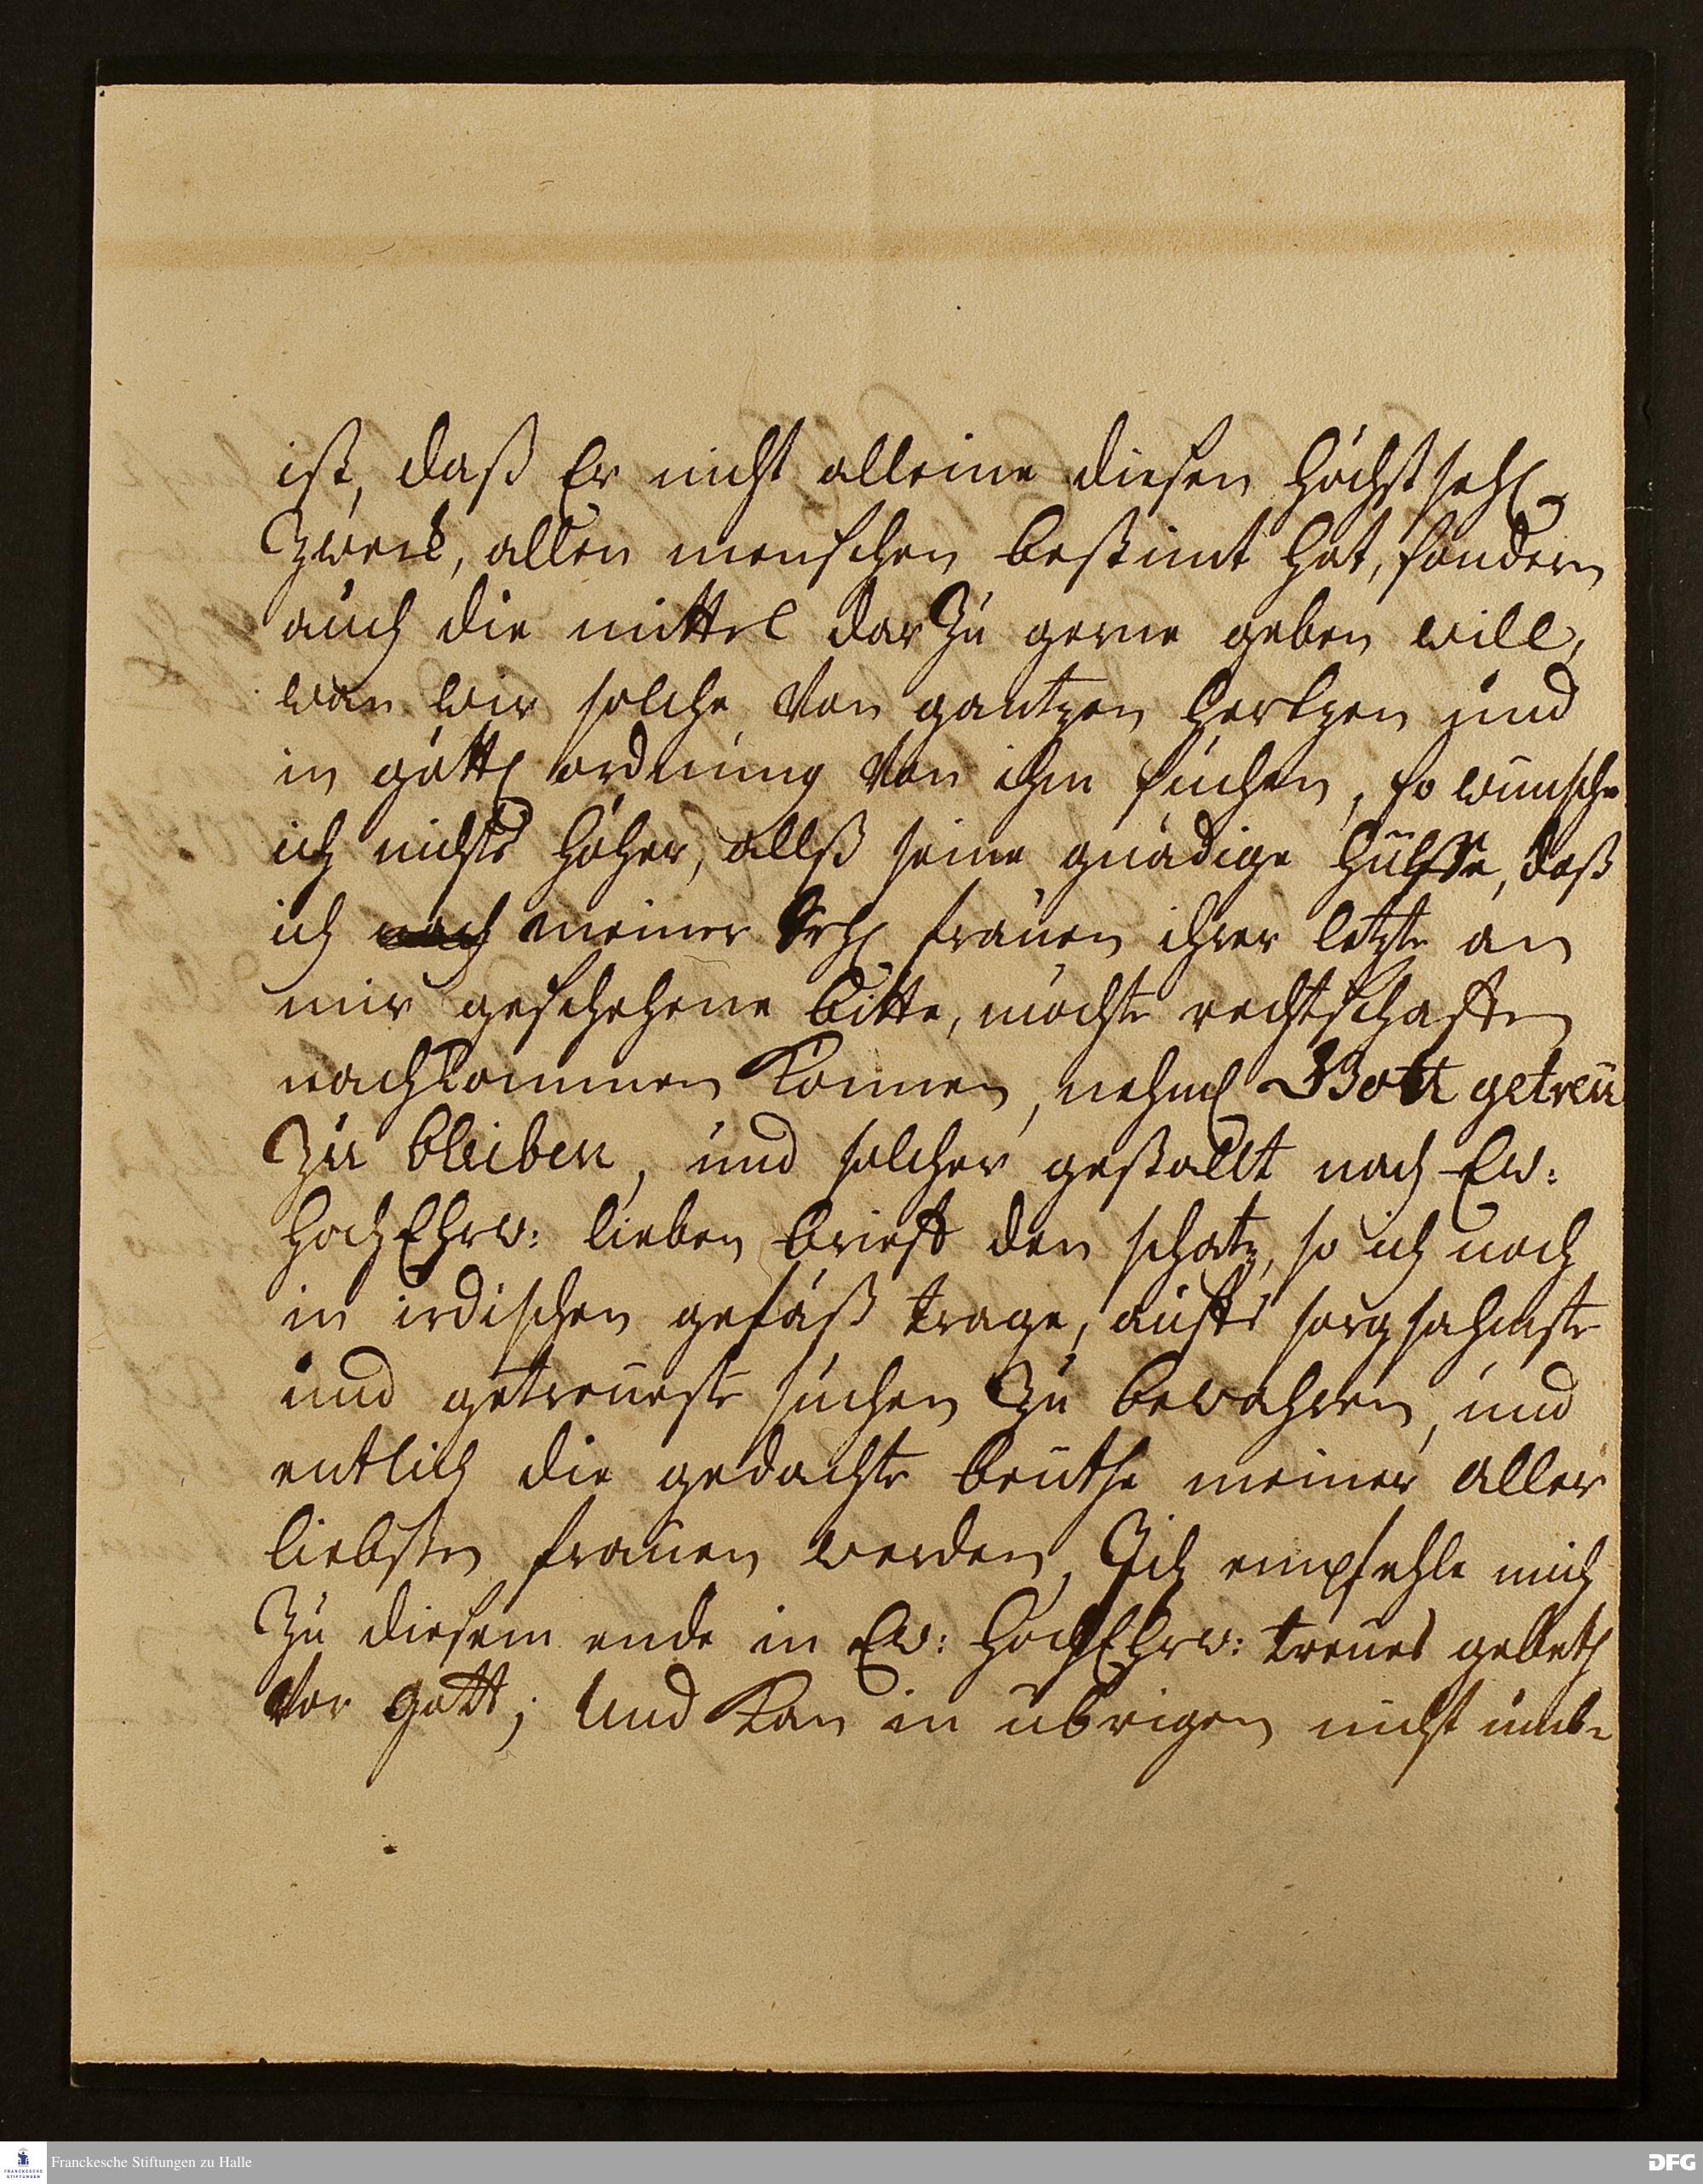 ist, daß Er nicht alleine diesen höchst seh.
Zweck, allen menschen bestimt hat, sondern
auch die mittel dar Zu gerne geben will,
wan wir solche Von gantzen hertzen und
in göttl ordnung Von ihm suchen, so wünsche
ich nichts höher, allß seine gnädige hülffe, daß
ich meiner Seel frauen ihrer letzte an
mir geschehene bitte, möchte rechtschaffen
nachkommen Können, nehml Gott getreü
Zu bleiben, und solcher gestallt nach Ew:
HochEhrw: lieben brieff den schatz, so ich noch
in irdischen gefäß trage, auffs sorgsahmste
und getreueste suchen Zu bewahren, und
entlich die gedachte beuthe meiner aller
liebsten frauen werden, Ich empfehle mich
Zu diesem ende in Ew: HochEhrw: treues gebeth
Vor gott; Und Kan in übrigen nicht umb-
Franckesche Stiftungen zu Halle
DFG